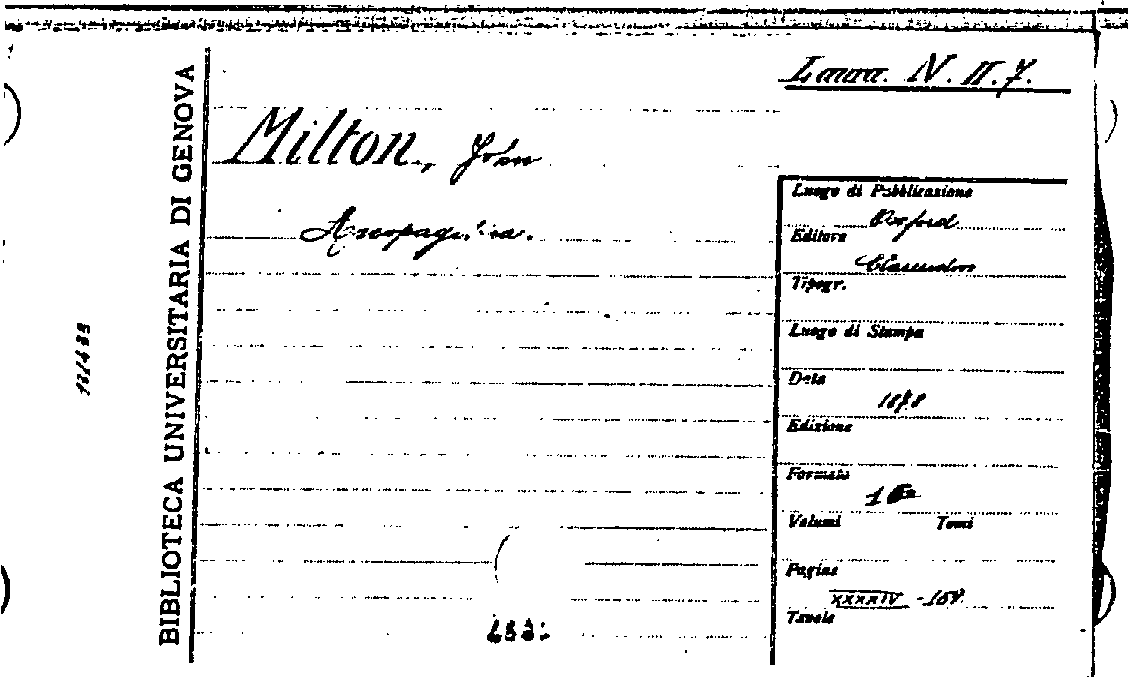 Laura. IV. II. 7.
Milton, John
Areopagitica.
BIBLIOTECA UNIVERSITARIA DI GENOVA
Luogo di Pubblicazione
Oxford
Editore
Clarendon
Tipogr.
Luogo di Stampa
Data
1878
Edizione
Formato
Volumi Tomi
Pagine
XXXXIV -158
Tavole